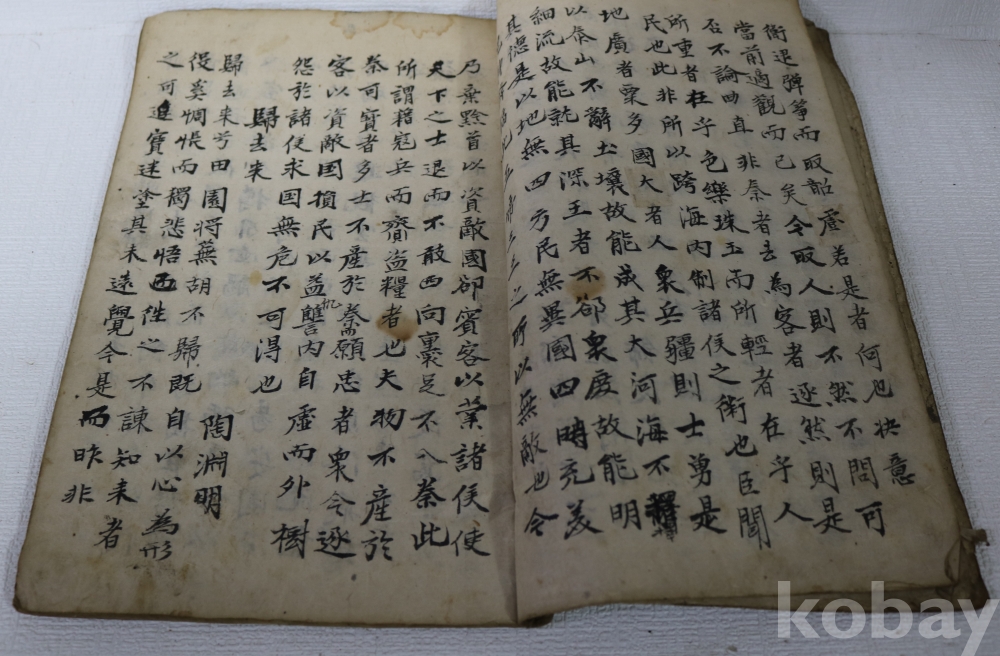 衛退彈箏而取韶虞若是者何也快意
當前適觀而已矣今取人則不然不問可
否不論曲直非秦者去為客者逐然則是
所重者在乎色樂珠玉而所輕者在乎人
民也此非所以跨海內制諸侯之術也臣聞
地廣者粟多國大者人衆兵彊則士勇是
以泰山不辭土壤故能成其大河海不擇
細流故能就其深王者不郤衆庶故能明
其德是以地無四方民無異國四時充美
五帝三王之所以無敵也今
乃棄黔首以資敵國卻賓客以業諸侯使
天下之士退而不敢西向裹足不入秦此
所謂藉寇兵而齎盜糧者也夫物不產於
秦可寶者多士不產於秦願忠者衆今逐
客以資敵国損民以益讐內自虛而外樹
怨於諸侯求国無危不可得也
歸去来 陶淵明
歸去来兮田園將蕪胡不歸既自以心為形
役奚惆悵而獨悲悟已往之不諫知来者
之可追實迷塗其未遠覺今是而昨非
kobay